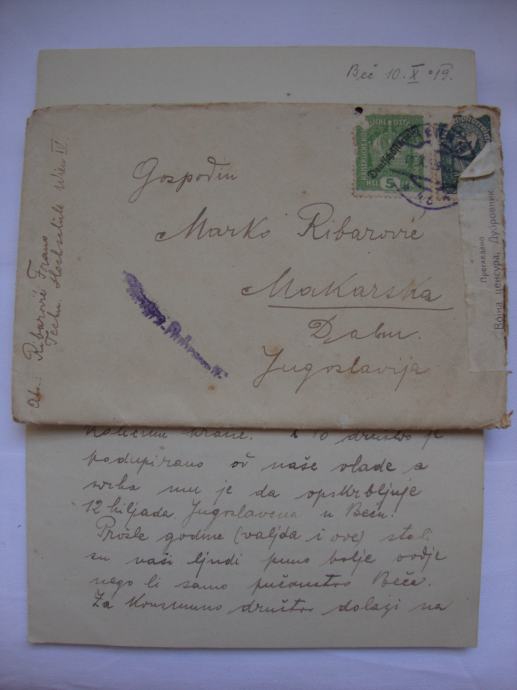 Beč 10. X. 019.
Gospodin
Marko Ribarović
Makarska
Dalm.
Jugoslavija
Ribarović Frano
Techn. Hochschule Wien IV.
Deutschösterreich
5
WIEN
Прегледано
Војна цензура, Дубровник
društvo je
podupirano od naše vlade a
svrha mu je da opskrbljuje
12 hiljada Jugoslavena u Beču.
Prošle godine (valjda i ove) stali
su vaši ljudi puno bolje ovdje
nego li samo pučanstvo Beča.
Za Konsumno društvo dolazi na